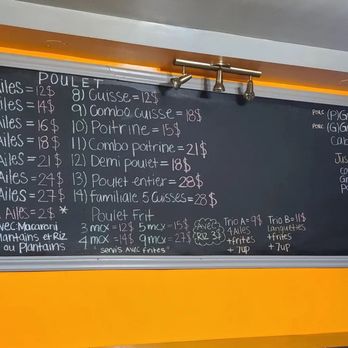 POULET
Ailes = 12$
Ailes = 14$
Ailes = 16$
Ailes = 18$
Ailes = 21$
Ailes = 24$
Ailes = 27$
Ailes = 2$ *
avec Macaroni
Plantains et Riz
ou Plantains
8) Cuisse = 12$
9) Combo cuisse = 18$
10) Poitrine = 15$
11) Combo poitrine = 21$
12) Demi poulet = 18$
13) Poulet entier = 28$
14) familiale 5 Cuisses = 28$
Poulet Frit
3 mcx = 12$ 5 mcx = 15$
4 mcx = 14$ 9 mcx = 27$
"servis avec frites"
AVEC
RIZ 3$
Trio A = 9$
4 Ailes
+ frites
+ 7up
Trio B = 11$
Languettes
+ frites
+ 7up
PORC (P)G
PORC (G)G
Jus